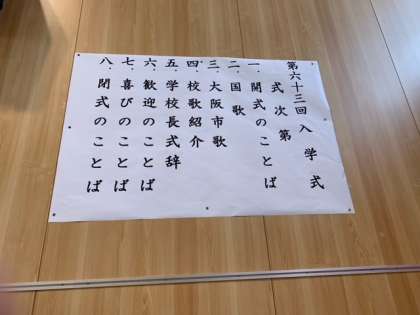 第六十三回 入学式
式次第
一. 開式のことば
二. 国歌
三. 大阪市歌
四. 校歌紹介
五. 学校長式辞
六. 歓迎のことば
七. 喜びのことば
八. 閉式のことば